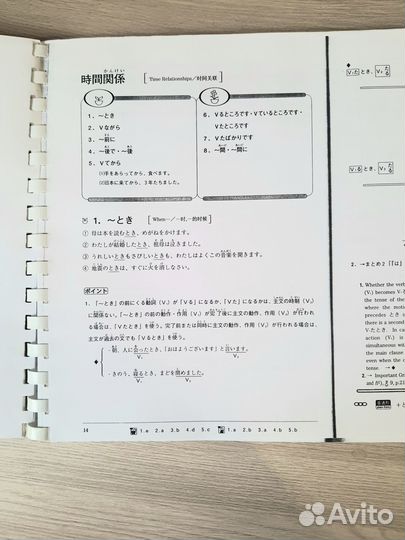 かんけい
時間関係 [ Time Relationships／时间关联 ]
1．～とき
2．Vながら
3．～前に
4．～後で・～後
5．Vてから
(1)手をあらってから、食べます。
(2)日本に来てから、3年たちました。
6．Vるところです・Vているところです・
Vたところです
7．Vたばかりです
8．～間・～間に
1．～とき [ When―／―时,―的时候 ]
① 母は本を読むとき、めがねをかけます。
② わたしが結婚したとき、祖母は泣きました。
③ うれしいときもさびしいときも、わたしはよくこの音楽を聞きます。
④ 地震のときは、すぐに火を消しなさい。
ポイント
1．「～とき」の前にくる動詞（V₁）が「Vる」になるか、「Vた」になるかは、主文の時制（V₂）
に関係ない。「～とき」の前の動作・作用（V₁）が完了後に主文の動作、作用（V₂）が行われ
る場合は、「Vたとき」を使う。完了前または同時に主文の動作、作用（V₂）が行われる場合は、
主文が過去の文でも「Vるとき」を使う。
・朝、人に会ったとき、「おはようございます」と言います。
V₁ V₂
・きのう、寝るとき、まどを閉めました。
V₁ V₂
14
1.e 2.a 3.b 4.d 5.c 1.a 2.b 3.a 4.b 5.b
2．→まとめ2「『は』
1. Whether the verb
(V₁) becomes V-
the tense of the
which the motion
precedes とき
there is a second
V-たとき. In ca
action (V₁) is
simultaneous with
the main clause
even when the n
tense. →◆
2. → Important Gr
Avito